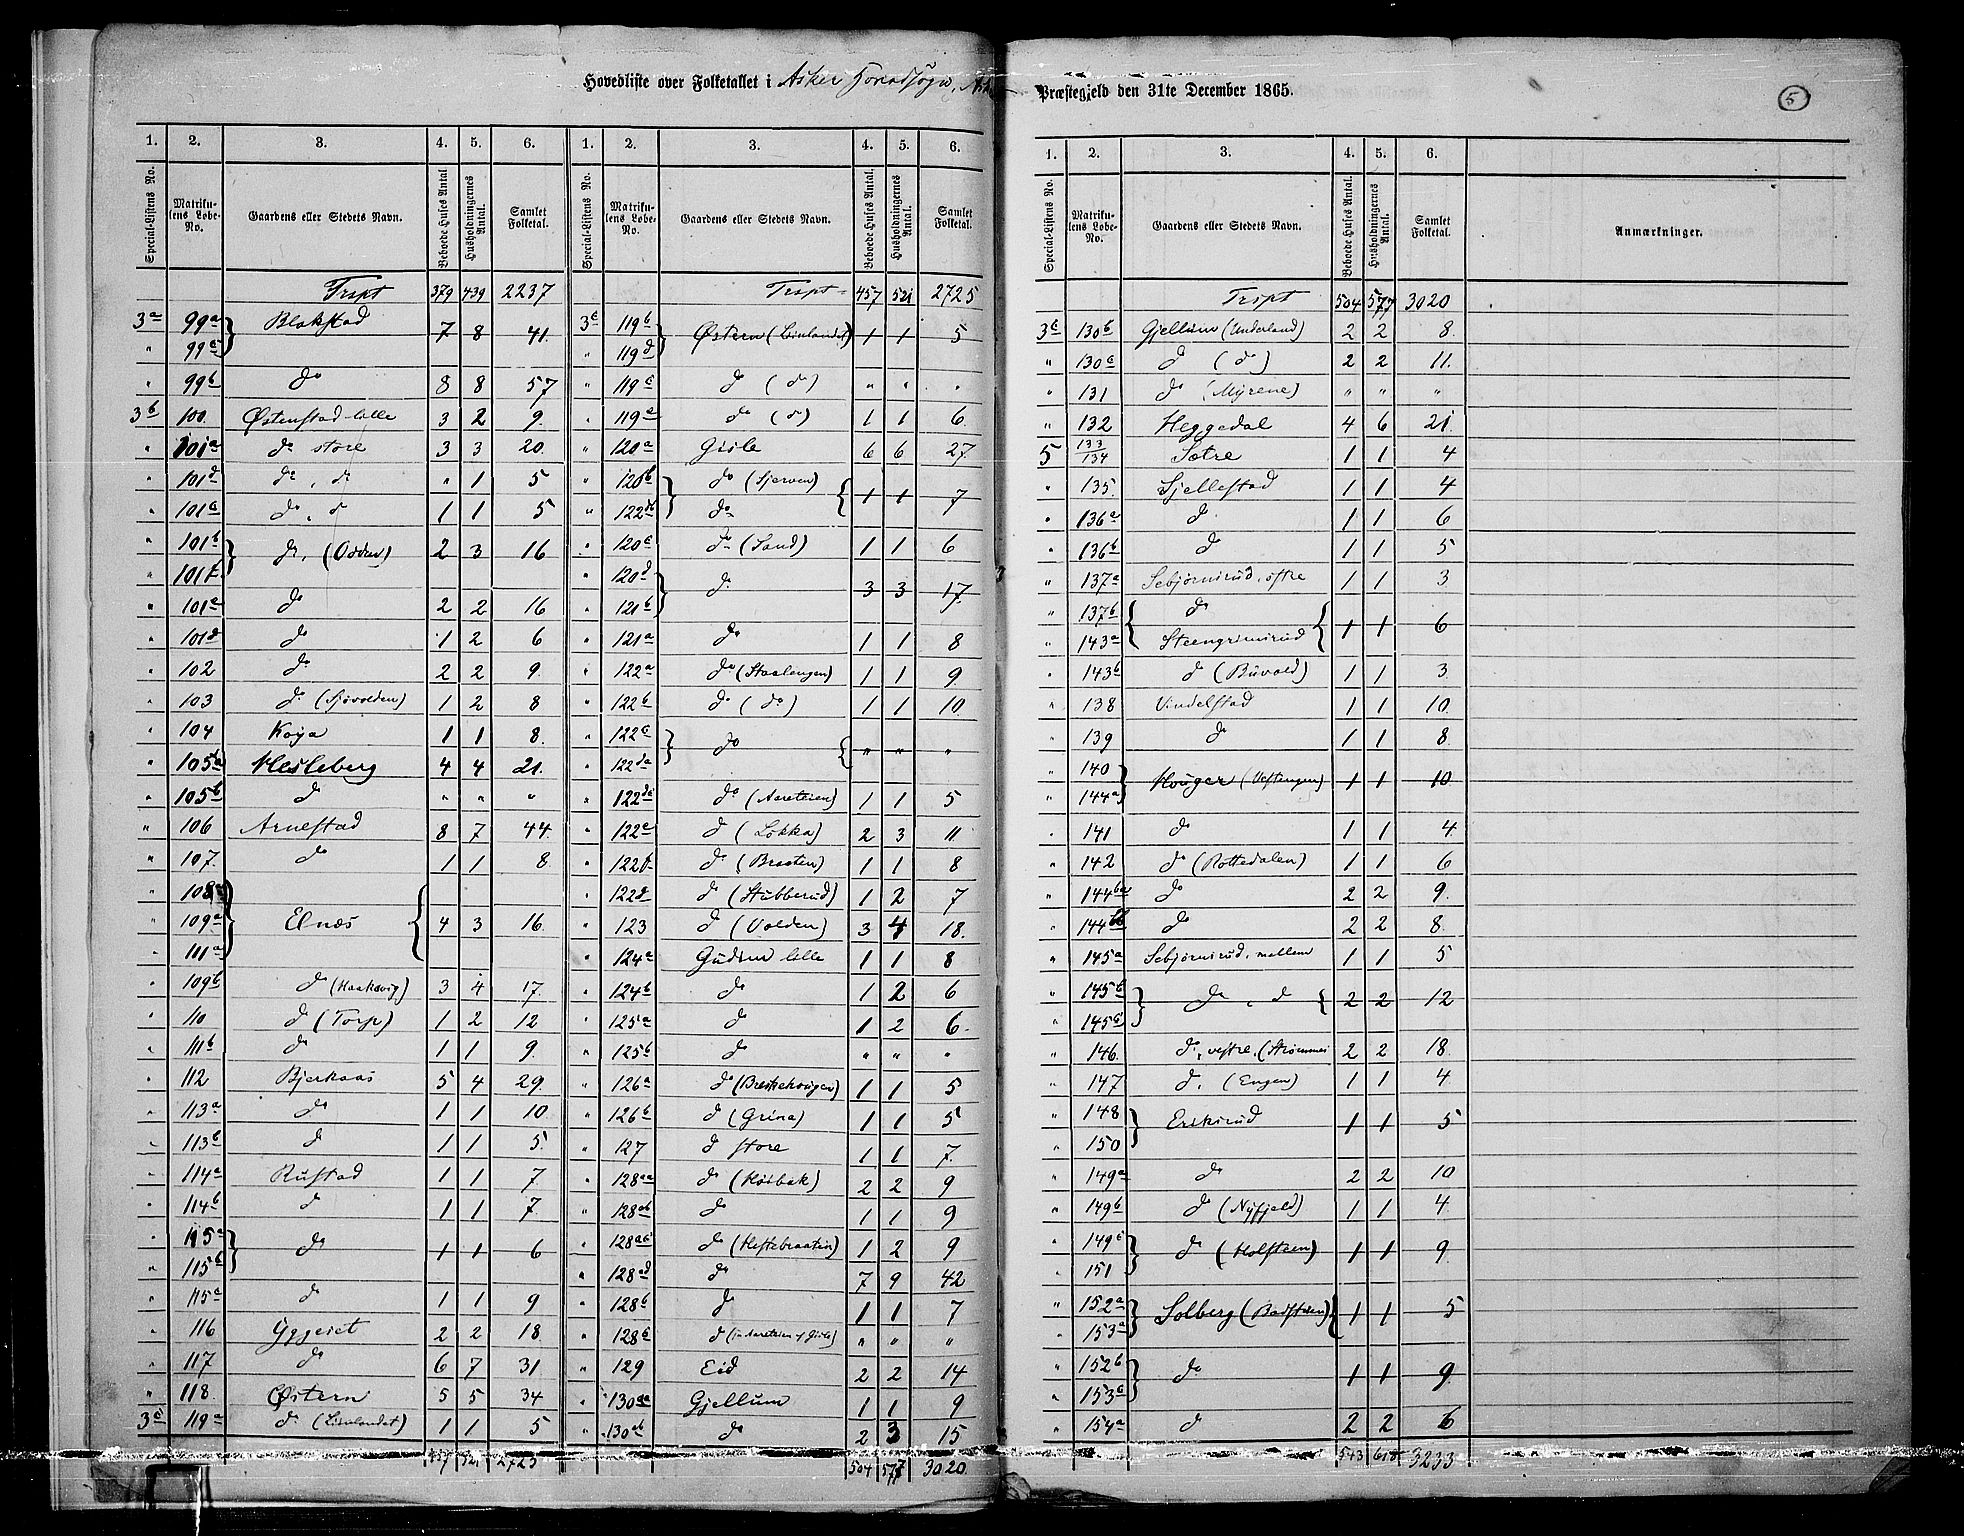 Hovedliste over Folketallet i Asker Hovedsogn, Præstegjeld den 31te December 1865.
5
1. 2. 3. 4. 5. 6.
Special-Listens No. Matrikulens Løbe-No. Gaardens eller Stedets Navn. Beboede Huses Antal Husholdningernes Antal. Samlet Folketal.
Trspt 379 439 2237
3a 99a Blakstad 7 8 41.
" 99c
" 99b do 8 8 57
3b 100. Østenstad lille 3 2 9.
" 101a do store 3 3 20.
" 101d do, do " 1 5
" 101e do, do 1 1 5
" 101b do, (Odden) 2 3 16
" 101f
" 101c do 2 2 16
" 101g do 1 2 6
" 102 do 2 2 9.
" 103 do (Sjøvolden) 1 2 8
" 104 Køya 1 1 8.
" 105a Hesleberg 4 4 21.
" 105b do " " "
" 106 Arnestad 8 7 44.
" 107. do 1 1 8.
" 108
" 109a Elnæs 4 3 16.
" 111a
" 109b do (Haakavig) 3 4 17.
" 110 do (Torp) 1 2 12
" 111b do 1 1 9.
" 112 Bjerkaas 5 4 29
" 113a do 1 1 10
" 113b do 1 1 5.
" 114a Rustad 1 1 7
" 114b do 1 1 7
" 115a do 1 1 6
" 115b
" 115c do 1 1 9
" 116 Yggeset 2 2 18
" 117 do 6 7 31
" 118. Østern 5 5 34
3c 119a do (Linlandet) 1 1 5
457 521 2725
1. 2. 3. 4. 5. 6.
Special-Listens No. Matrikulens Løbe-No. Gaardens eller Stedets Navn. Beboede Huses Antal. Husholdningernes Antal. Samlet Folketal.
Trspt 457 521 2725
3c 119b Østern (Linlandet) 1 1 5
" 119d
" 119c do (do) " " "
" 119e do (do) 1 1 6
" 120a Gisle 6 6 27
" 120b do (Sjerven) 1 1 7
" 122db do
" 120c do (Sand) 1 1 6
" 120d do 3 3 17.
" 121b
" 121a do 1 1 8
" 122a do (Staalengen) 1 1 9.
" 122b do (do) 1 1 10.
" 122c do " " "
" 122da
" 122dc do (Aareteien) 1 1 5
" 122e do (Løkka) 2 3 11
" 122f do (Braaten) 1 1 8
" 122g do (Stubberud) 1 2 7
" 123 do (Volden) 3 4 18.
" 124a Gudsen lille 1 1 8
" 124b do 1 2 6
" 125a do 1 2 6.
" 125b do " " "
" 126a do (Breskehougen) 1 1 5
" 126b do (Grina) 1 1 5
" 127 do store 1 1 7.
" 128aa do (Kösbak) 2 2 9
" 128ab do 1 1 9
" 128ac do (Heftebraaten) 1 2 9
" 128ad do 7 9 42
" 128b do 1 1 7
" 128c do " " "
" 129 Eid 2 2 14
" 130aa Gjellum 1 1 9
" 130ab do 2 3 15
504 577 3020.
1. 2. 3. 4. 5. 6.
Special-Listens No. Matrikulens Løbe-No. Gaardens eller Stedets Navn. Beboede Huses Antal. Husholdningernes Antal. Samlet Folketal. Anmærkninger.
Trspt 504 577 3020
3c 130b Gjellum (Underland) 2 2 8
" 130c do (do) 2 2 11.
" 131 do (Myrene) " " "
" 132 Heggedal 4 6 21.
5 133/134 Sætre 1 1 4
" 135. Sjellestad 1 1 4
" 136a do 1 1 6
" 136b do 1 1 5
" 137a Sebjørnsrud, østre 1 1 3
" 137b do 1 1 6
" 143a Steengrimsrud
" 143b do (Buvold) 1 1 3
" 138 Vindelstad 1 1 10.
" 139 do 1 1 8.
" 140 Houger (Vestengen) 1 1 10
" 144a
" 141 do 1 1 4
" 142 do (Rottedalen) 1 1 6
" 144ba do 2 2 9.
" 144bb do 2 2 8.
" 145a Sebjørnsrud, mellem 1 1 5
" 145b do, do 2 2 12
" 145c
" 146. do, vestre, (Strømmen 2 2 18
" 147 do, (Engen) 1 1 4
" 148 Erskisrud 1 1 5
" 150
" 149a do 2 2 10
" 149b do (Nyfjeld) 1 1 4.
" 149c do (Holsteen) 1 1 9.
" 151
" 152a Solberg (Badstuen) 1 1 5
" 153a
" 152b do 1 1 9
" 153c
" 154a do 2 2 6
543 618 3233